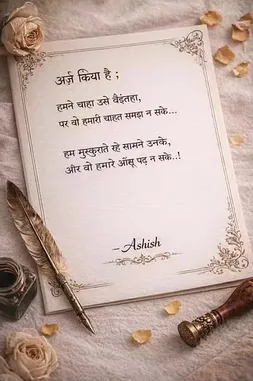 अर्ज़ किया है ;
हमने चाहा उसे वेइंतहा,
पर वो हमारी चाहत समझ न सके...
हम मुस्कुराते रहे सामने उनके,
और वो हमारे आँसू पढ़ न सके..!
– Ashish